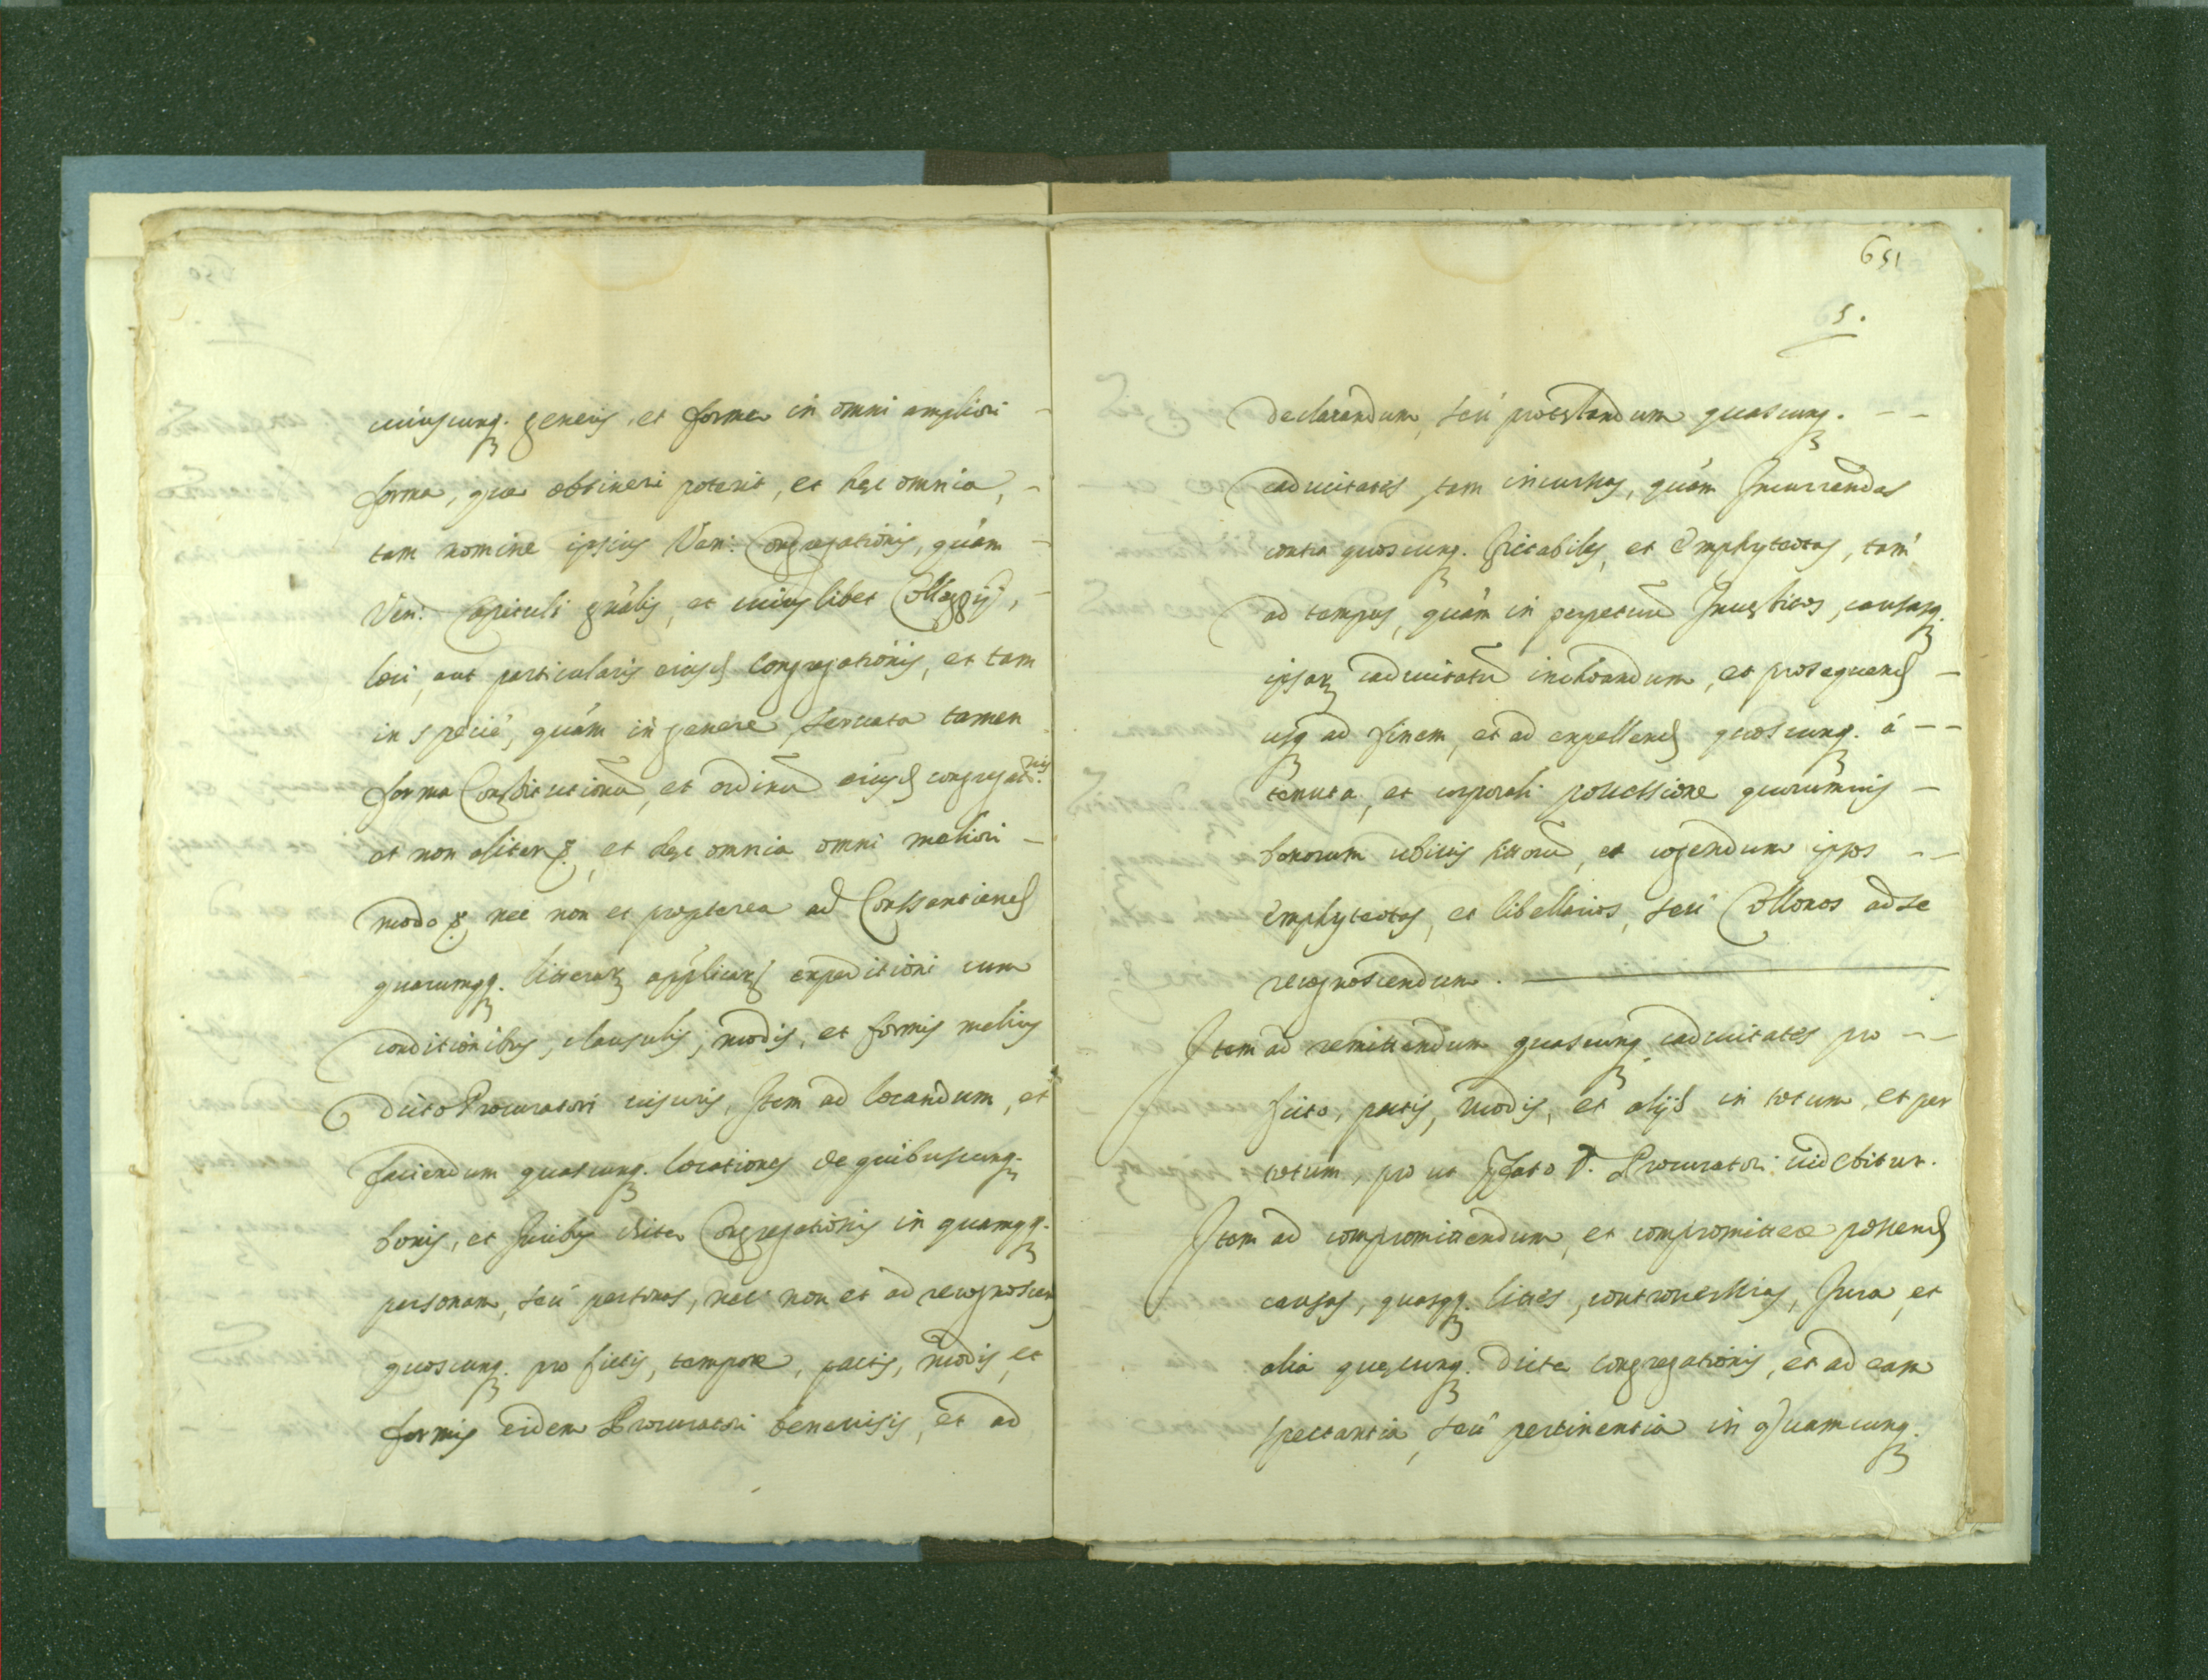 cuiuscunq. generis, et formæ in omni ampliori
forma, quæ obtineri poterit, et hęc omnia,
tam nomine ipsius Ven: Congregationis, quàm
Ven: Capituli gnãlis, et cuiuslibet Colleggij,
loci, aut particularis eiusd Congregationis, et tam
in speciè, quàm in genere, seruata tamen
forma Constitutionũ, et ordinũ eiusd congregat.nis
et non aliter &, et hęc omnia omni meliori
modo &, nec non et propterea ad Consentiend
quarumqq. litterarũ applicarũ expeditioni cum
conditionibus, clausulis, modis, et formis melius
dicto Procuratori uisuris, Item ad locandum, et
faciendum quascunq. locationes de quibuscunq.
bonis, et Iuribus dictæ Congregationis in quamqq.
personam, seù personas, nec non et ad recognoscend
quoscunq. pro fictis, tempore, pactis, modis, et
formis eidem Procuratori beneuisis, et ad
651
5.
declarandum, seù protestandum quascunq.
caducitates, tam incursas, quàm Incurrendas
contra quoscunq. fictabiles, et emphyteotas, tam
ad tempus, quàm in perpetuũ Inuestitos, causasq.
ipsarũ caducitatũ inchoandum, et prosequend
usq ad finem, et ad expellend quoscunq. à
tenuta, et corporali possessione quorumuis
bonorum ubiuis sitorũ, et cogendum ipsos
emphyteotas, et libellarios, seù Collonos ad se
recognoscendum.
Item ad remittendum quascunq caducitates pro
ficto, pactis, modis, et alijs in totum, et per
totum, pro ut pfato D. Procuratori uidebitur.
Item ad compromittendum, et compromittere possend
causas, quasqq. lites, controuersias, Iura, et
alia quęcunq. dictæ congregationis, et ad eam
spectantia, seù pertinentia in quamcunq.